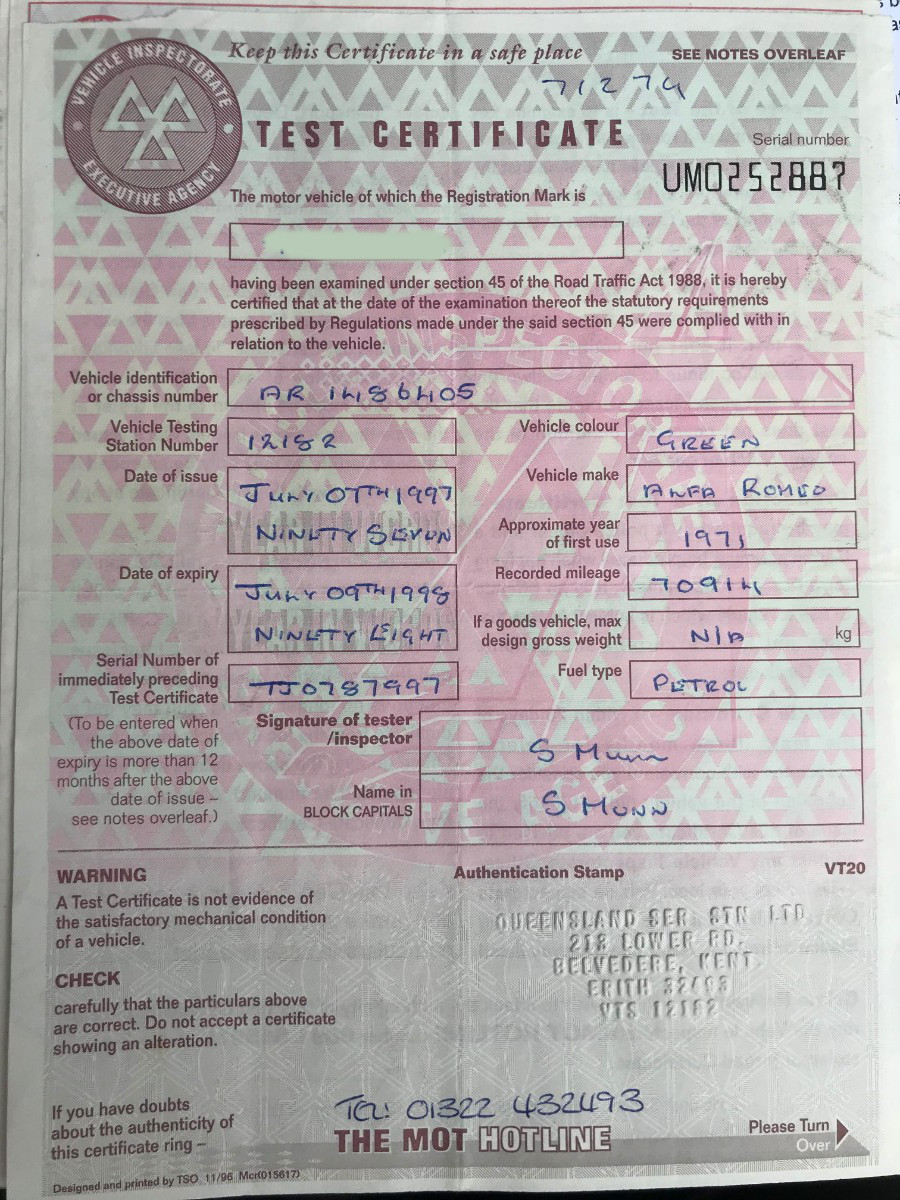 VEHICLE INSPECTORATE
EXECUTIVE AGENCY
Keep this Certificate in a safe place
SEE NOTES OVERLEAF
71274
TEST CERTIFICATE
Serial number
UM0252887
The motor vehicle of which the Registration Mark is
having been examined under section 45 of the Road Traffic Act 1988, it is hereby
certified that at the date of the examination thereof the statutory requirements
prescribed by Regulations made under the said section 45 were complied with in
relation to the vehicle.
Vehicle identification
or chassis number
AR 1486405
Vehicle Testing
Station Number
12182
Vehicle colour
GREEN
Date of issue
JULY 07TH 1997
NINETY SEVEN
Vehicle make
ALFA ROMEO
Approximate year
of first use
1971
Date of expiry
JULY 09TH 1998
NINETY EIGHT
Recorded mileage
70914
If a goods vehicle, max
design gross weight
N/A
kg
Serial Number of
immediately preceding
Test Certificate
TJ0787997
Fuel type
PETROL
(To be entered when
the above date of
expiry is more than 12
months after the above
date of issue –
see notes overleaf.)
Signature of tester
/inspector
S Munn
Name in
BLOCK CAPITALS
S MUNN
WARNING
A Test Certificate is not evidence of
the satisfactory mechanical condition
of a vehicle.
CHECK
carefully that the particulars above
are correct. Do not accept a certificate
showing an alteration.
Authentication Stamp
VT20
QUEENSLAND SER STN LTD
213 LOWER RD,
BELVEDERE, KENT.
ERITH 32493
VTS 12182
If you have doubts
about the authenticity of
this certificate ring –
TEL: 01322 432493
THE MOT HOTLINE
Please Turn
Over
Designed and printed by TSO 11/96 Mcr(015617)